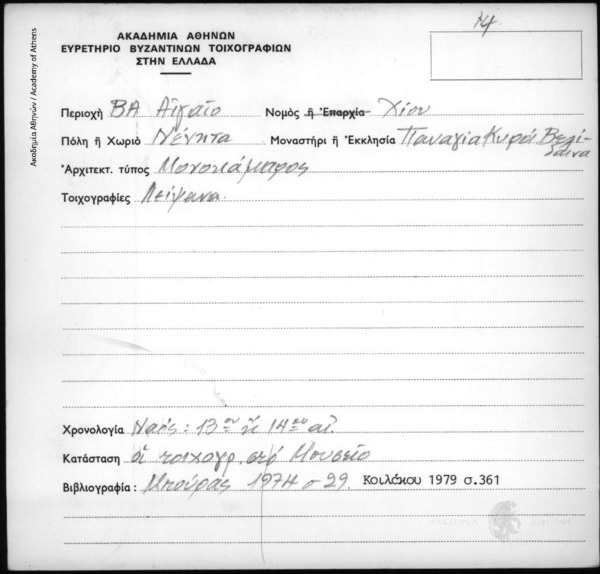 14
ΑΚΑΔΗΜΙΑ ΑΘΗΝΩΝ
ΕΥΡΕΤΗΡΙΟ ΒΥΖΑΝΤΙΝΩΝ ΤΟΙΧΟΓΡΑΦΙΩΝ
ΣΤΗΝ ΕΛΛΑΔΑ
Ακαδημία Αθηνών / Academy of Athens
Περιοχή ΒΑ Αἰγαῖο Νομὸς ἢ Ἐπαρχία Χίου
Πόλη ἢ Χωριὸ Νένητα Μοναστήρι ἢ Ἐκκλησία Παναγία Κυρά Βελι-
δαινα
Ἀρχιτεκτ. τύπος Μονοκάμαρος
Τοιχογραφίες Λείψανα.
Χρονολογία Ναός: 13ου ἢ 14ου αἰ
Κατάσταση οἱ τοιχογρ. στό Μουσεῖο
Βιβλιογραφία : Μπούρας 1974 σ 29. Κοιλάκου 1979 σ.361